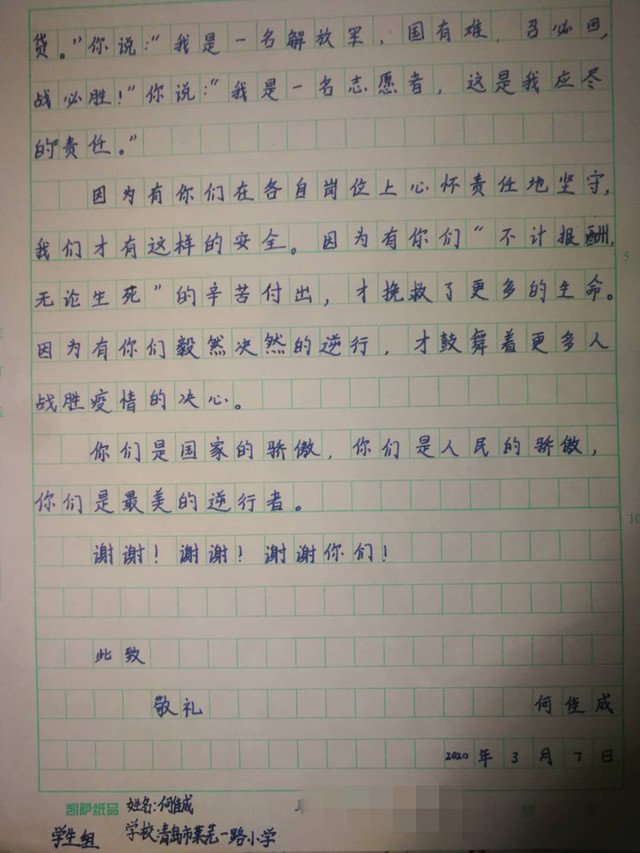 贷。”你说：“我是一名解放军，国有难，召必回，
战必胜！”你说：“我是一名志愿者，这是我应尽
的责任。”
因为有你们在各自岗位上心怀责任地坚守，
我们才有这样的安全。因为有你们“不计报酬，
无论生死”的辛苦付出，才挽救了更多的生命。
因为有你们毅然决然的逆行，才鼓舞着更多人
战胜疫情的决心。
你们是国家的骄傲，你们是人民的骄傲，
你们是最美的逆行者。
谢谢！谢谢！谢谢你们！
此致
敬礼 何佳成
2020年3月7日
凯萨纸品 姓名：何佳成
学生组 学校：青岛市莱芜一路小学
5
10